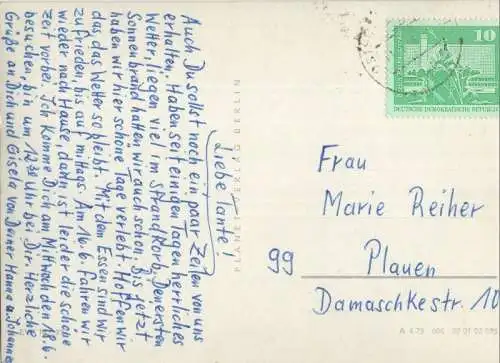 Liebe Tante!
Auch Du sollst noch ein paar Zeilen von uns
erhalten. Haben seit einigen Tagen herrliches
Wetter, liegen viel im Strandkorb. Den ersten
Sonnenbrand hatten wir auch schon. Bis jetzt
haben wir hier schöne Tage verlebt. Hoffen wir
das, das Wetter so bleibt. Mit dem Essen sind wir
zufrieden, bis auf mittags. Am 16.6. fahren wir
wieder nach Hause, dann ist leider die schöne
Zeit vorbei. Ich komme Dich am Mittwoch den 18.6.
besuchen, bin um 12³⁸ Uhr bei Dir. Herzliche
Grüße an Dich und Gisela von Deiner Hanna u. Johannes
PLANET-VERLAG BERLIN
10
DEUTSCHE DEMOKRATISCHE REPUBLIK
Frau
Marie Reiher
99 Plauen
Damaschkestr. 10